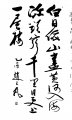 白日依山盡黃河入海
流欲窮千里目更上
一層樓